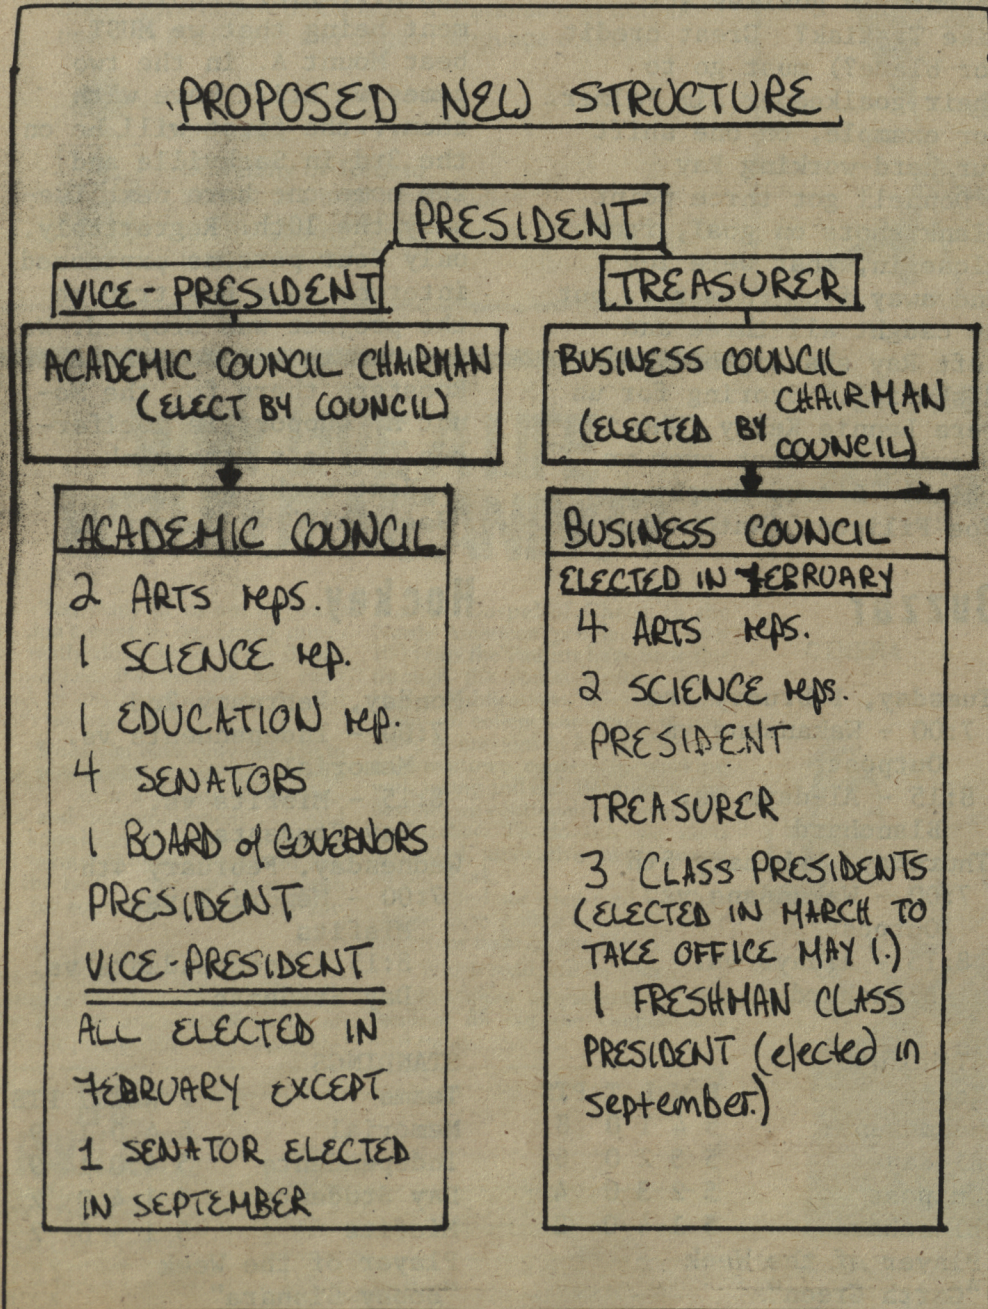 PROPOSED NEW STRUCTURE
PRESIDENT
VICE-PRESIDENT
TREASURER
ACADEMIC COUNCIL CHAIRMAN
(ELECT BY COUNCIL)
BUSINESS COUNCIL
CHAIRMAN
(ELECTED BY
COUNCIL)
ACADEMIC COUNCIL
2 ARTS reps.
1 SCIENCE rep.
1 EDUCATION rep.
4 SENATORS
1 BOARD of GOVERNORS
PRESIDENT
VICE-PRESIDENT
ALL ELECTED IN
FEBRUARY EXCEPT
1 SENATOR ELECTED
IN SEPTEMBER
BUSINESS COUNCIL
ELECTED IN FEBRUARY
4 ARTS reps.
2 SCIENCE reps.
PRESIDENT
TREASURER
3 CLASS PRESIDENTS
(ELECTED IN MARCH TO
TAKE OFFICE MAY 1.)
1 FRESHMAN CLASS
PRESIDENT (elected in
september.)